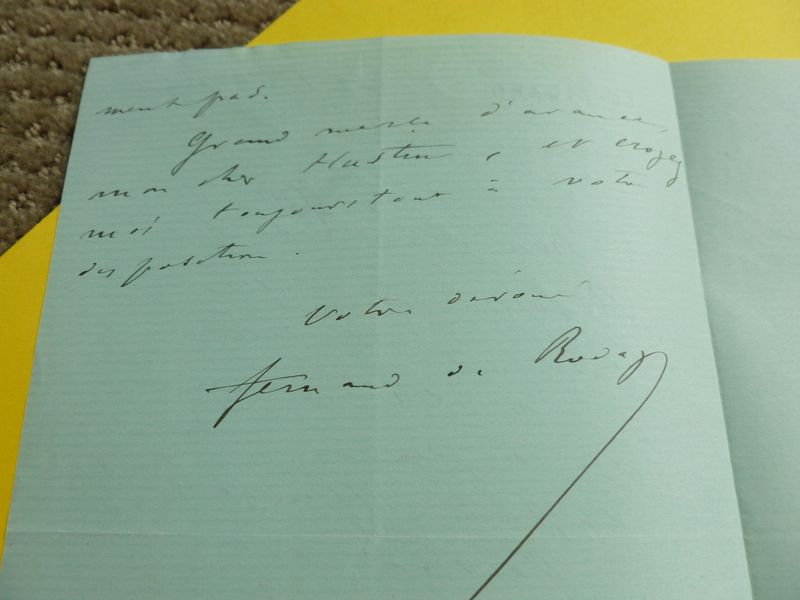 ment pas.
Grand merci d'avance,
mon cher Hustin, et croyez
moi toujours tout à votre
disposition.
Votre dévoué
Fernand de Rodays